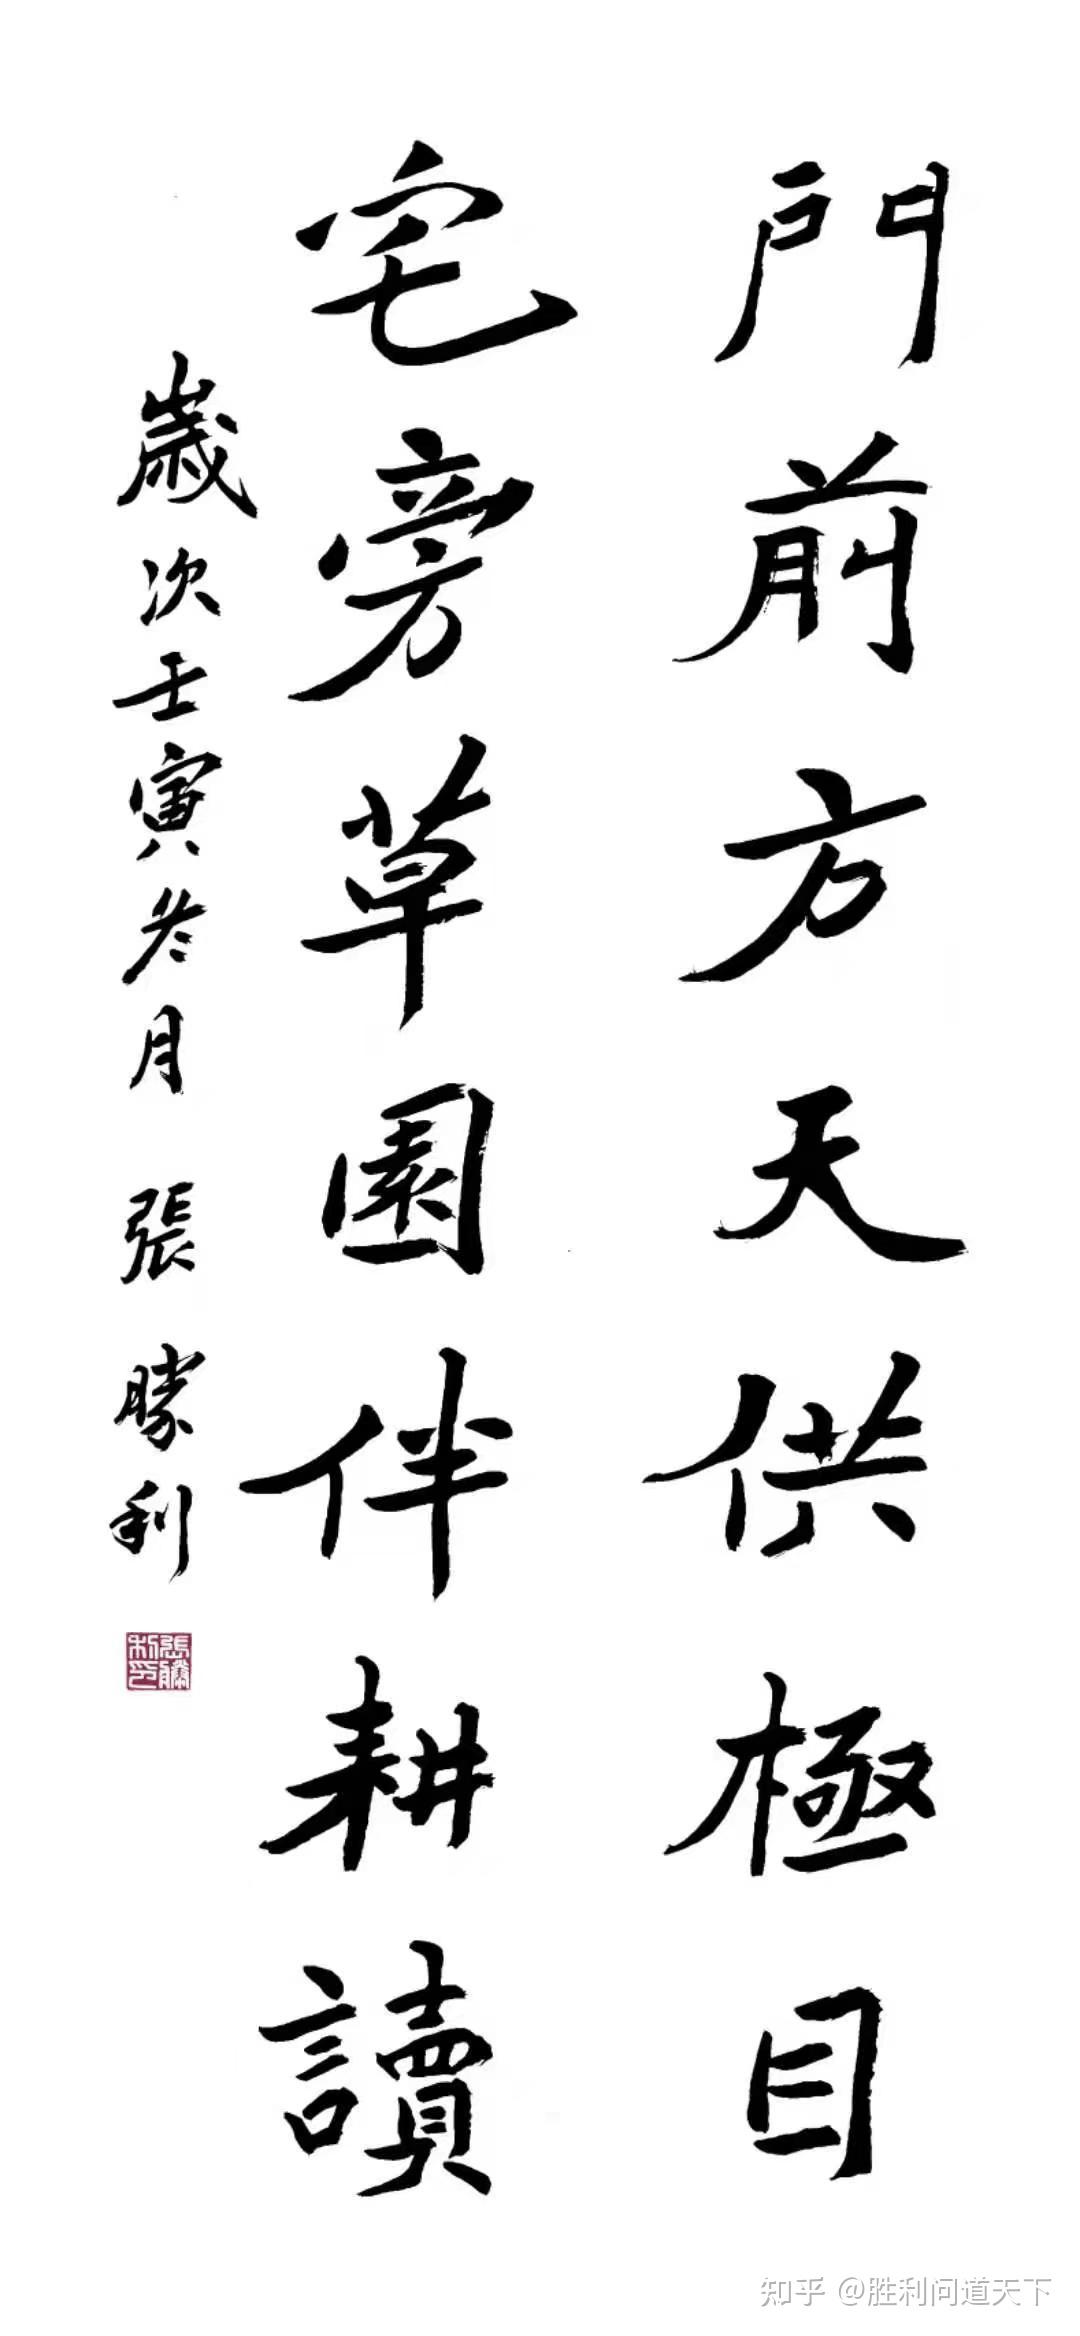 門前方天供極目
宅旁草園伴耕讀
歲次壬寅冬月 張勝利
張勝利印
知乎 @胜利问道天下